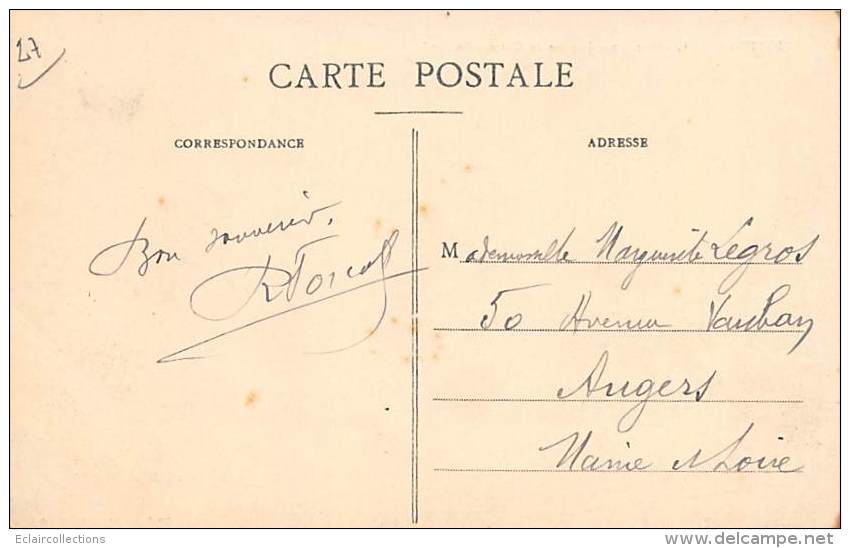 27
CARTE POSTALE
CORRESPONDANCE
ADRESSE
Bon souvenir.
Mademoiselle Marguerite Legros
50 Avenue Vauban
Angers
Maine & Loire
Eclaircollections
www.delcampe.net